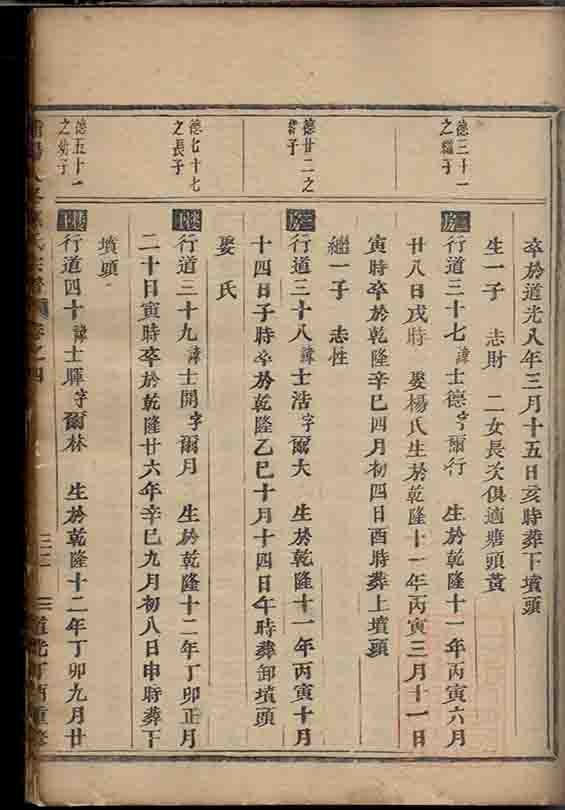 卒於道光八年三月十五日亥時葬下墳頭
生一子 志財 二女長次俱適塘頭黃
德三十一
之繼子
行道三十七諱士德字爾行 生於乾隆十一年丙寅六月
廿八日戌時 娶楊氏生於乾隆十一年丙寅三月十一日
寅時卒於乾隆辛巳四月初四日酉時葬上墳頭
繼一子 志性
德廿二之
子
行道三十八諱士活字爾大 生於乾隆十一年丙寅十月
十四日子時卒於乾隆乙巳十月十四日午時葬卸墳頭
娶氏
德七十七
之長子
行道三十九諱士開字爾月 生於乾隆十二年丁卯正月
二十日寅時卒於乾隆廿六年辛巳九月初八日申時葬下
墳頭
德五十一
之幼子
行道四十諱士暉字爾林 生於乾隆十二年丁卯九月廿
卷之四
道光丁酉重修